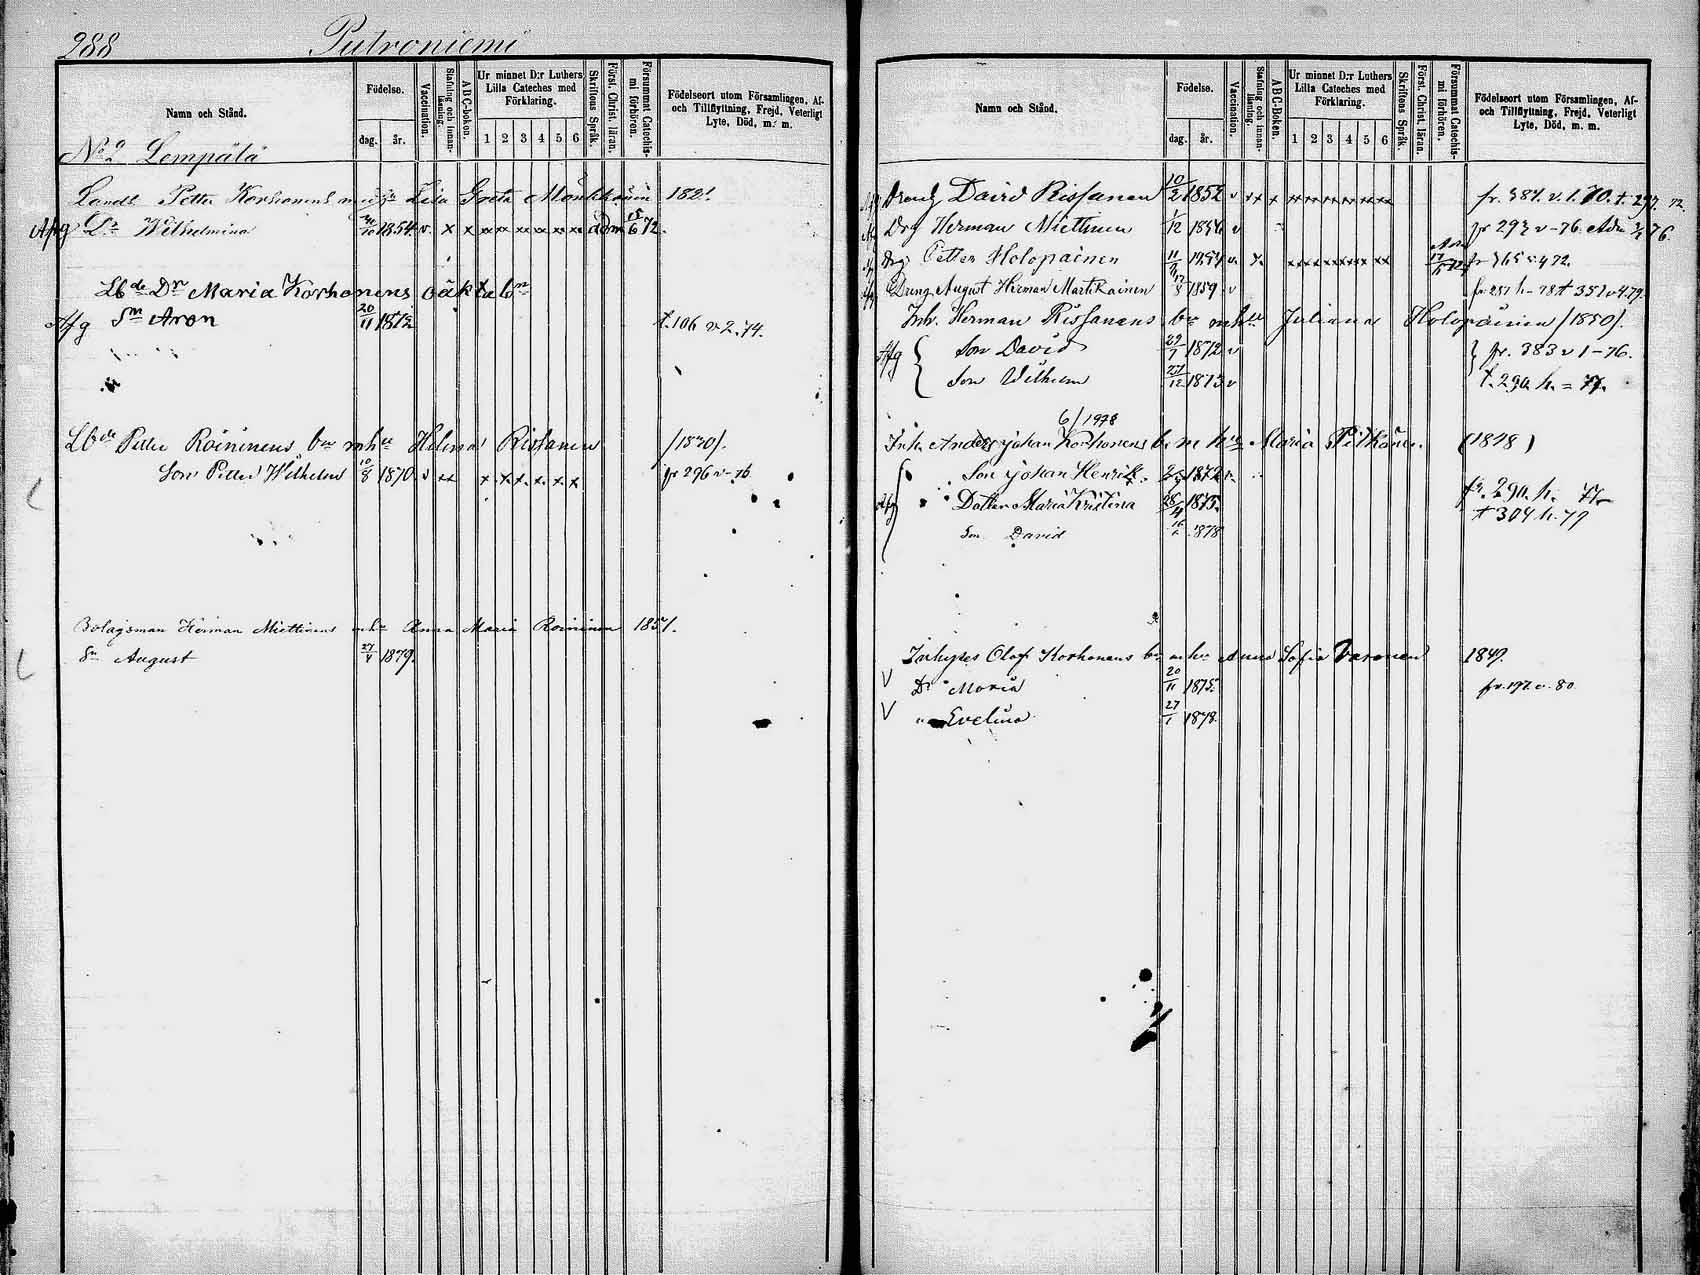 288 Putroniemi
Namn och Stånd.
Födelse.
dag. år.
Vaccination.
Stafning och innan-läsning.
ABC-boken.
Ur minnet D:r Luthers Lilla Cateches med Förklaring.
1 2 3 4 5 6
Skriftens Språk.
Först. Christ. läran.
Försummat Catechis-mi förhören.
Födelseort utom Församlingen, Af- och Tillflyttning, Frejd, Veterligt Lyte, Död, m. m.
No 2 Lempälä
Petter Korhonens Lisa Greta Mönkkönen 182
Afg Wilhelmina 1854 v. x x xx xx xx xx xx xx adm 15/6 72.
Lbde Dr Maria Korhonens oäkta bn
Afg Sn Aron 20/11 1872 t. 106 v 2.74.
Lbde Petter Roininens bn mhu Helena Rissanen /1870/.
Son Petter Wilhelm 10/8 1870 v xx x x x x x x fr 296 v-76
Bolagsman Herman Miettinens Anna Maria Roininen 1851.
Sn August 27/4 1879.
Namn och Stånd.
Födelse.
dag. år.
Vaccination.
Stafning och innan-läsning.
ABC-Boken.
Ur minnet D:r Luthers Lilla Cateches med Förklaring.
1 2 3 4 5 6
Skriftens Språk.
Först. Christ. läran.
Försummat Catechis-mi förhören.
Födelseort utom Församlingen, Af- och Tillflyttning, Frejd, Veterligt Lyte, Död, m. m.
Dreng David Rissanen 10/2 1852 v xx x xx xx xx xx xx xx fr. 381. v. 1. 70. t. 297. 72.
Drg Herman Miettinen 1/12 1856 v fr 293 v-76.
Drg. Petter Holopainen 11/11 1854 v. x. fr 365 v 4 72.
Dreng August Herman Martikainen 17/8 1859 v fr. 287 h-78 t 351 v 4.79.
Inh. Herman Rissanens bn mhu Juliana Holopainen /1850/.
Afg { Son David 29/1 1872 v } fr. 383 v 1-76.
Son Wilhelm 27/12 1873 v t. 290. h. = 77.
6/1978
Inh. Anders Johan Korhonens b. m hu Maria Pitkänen. (1848)
Son Johan Henrik. 1872 v. fr. 290. h. 77
Afg Dotter Maria Kristina 28/4 1875. t 304 h. 79
Son David 1878
Inhyses Olof Korhonens bn mhu Anna Sofia Varonen 1849.
V Dr Maria 20/11 1875. fr. 197. v. 80
V " Evelina 27/1 1878.